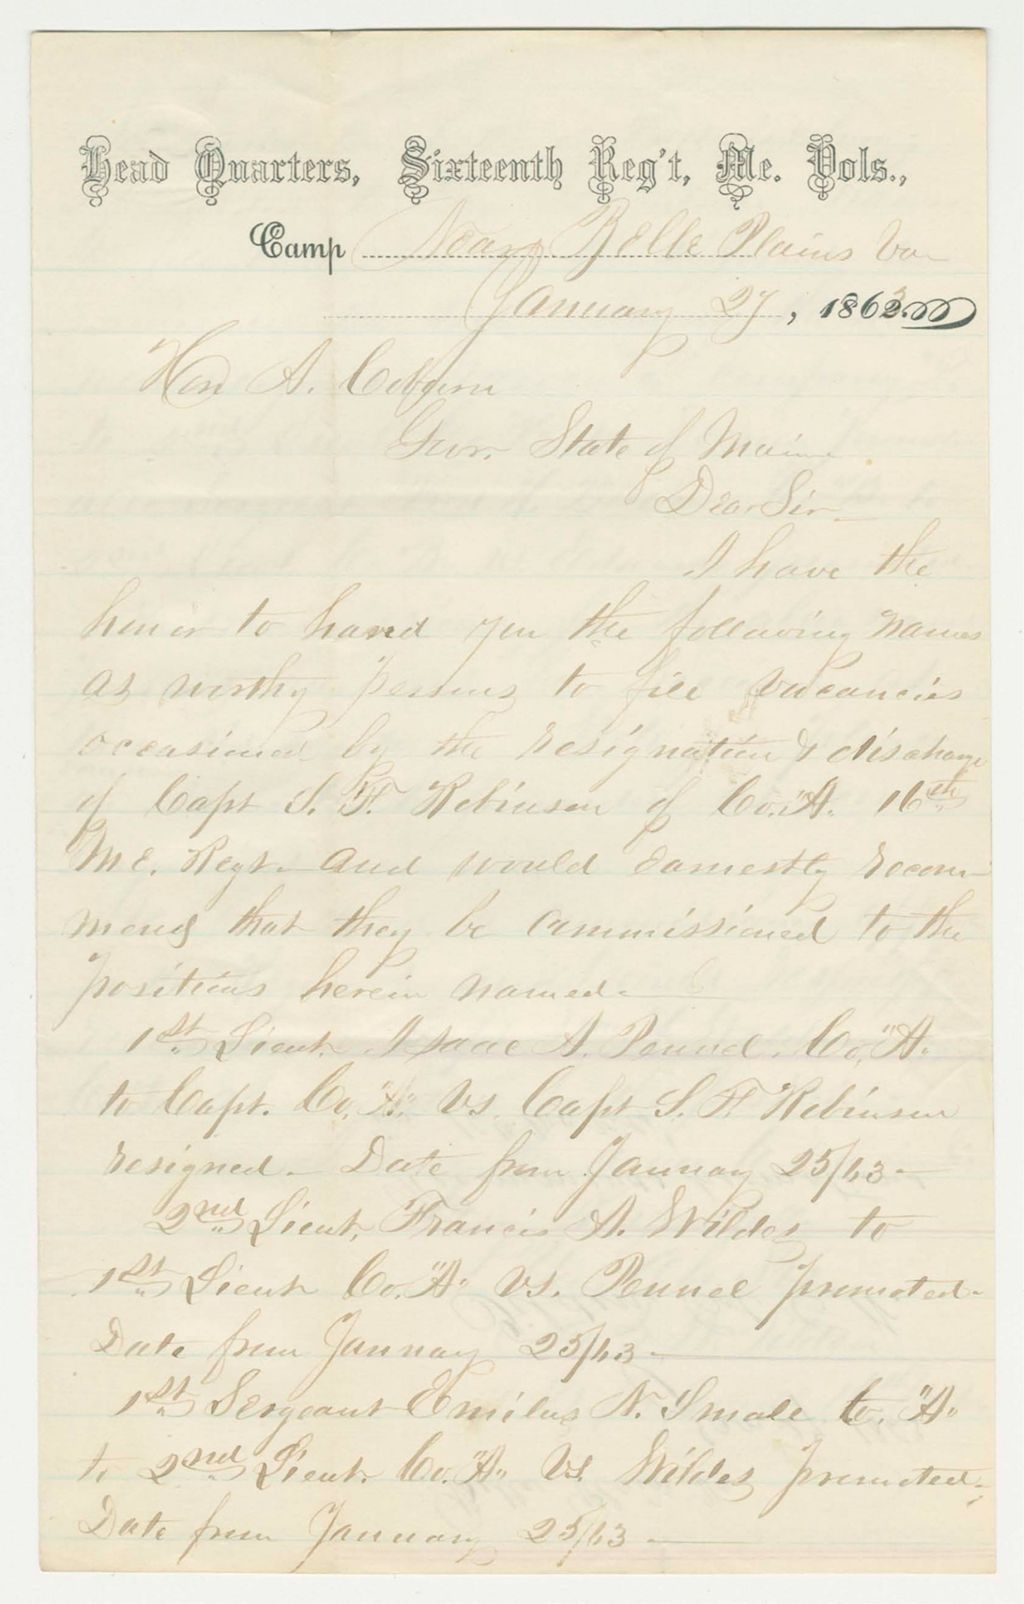 Head Quarters, Sixteenth Reg't, Me. Vols.,
Camp Near Belle Plains Va
January 27, 1863
Hon A. Coburn
Gov. State of Maine
Dear Sir
I have the
honor to hand you the following names
as worthy persons to fill vacancies
occasioned by the resignation & discharge
of Capt S. F. Robinson of Co. "A" 16th
ME. Regt. and would earnestly recom-
mend that they be commissioned to the
positions herein named.
1st Lieut. Isaac A. Pennel. Co, "A"
to Capt. Co, "A" Vs. Capt S. F Robinson
resigned. Date from January 25/63.
2nd Lieut, Francis A. Wildes to
1st Lieut Co. "A" Vs. Pennel promoted.
Date from January 25/63.
1st Sergeant Emilus N. Smale Co. "A"
to 2nd Lieut. Co. "A" Vs. Wildes promoted,
Date from January 25/63.